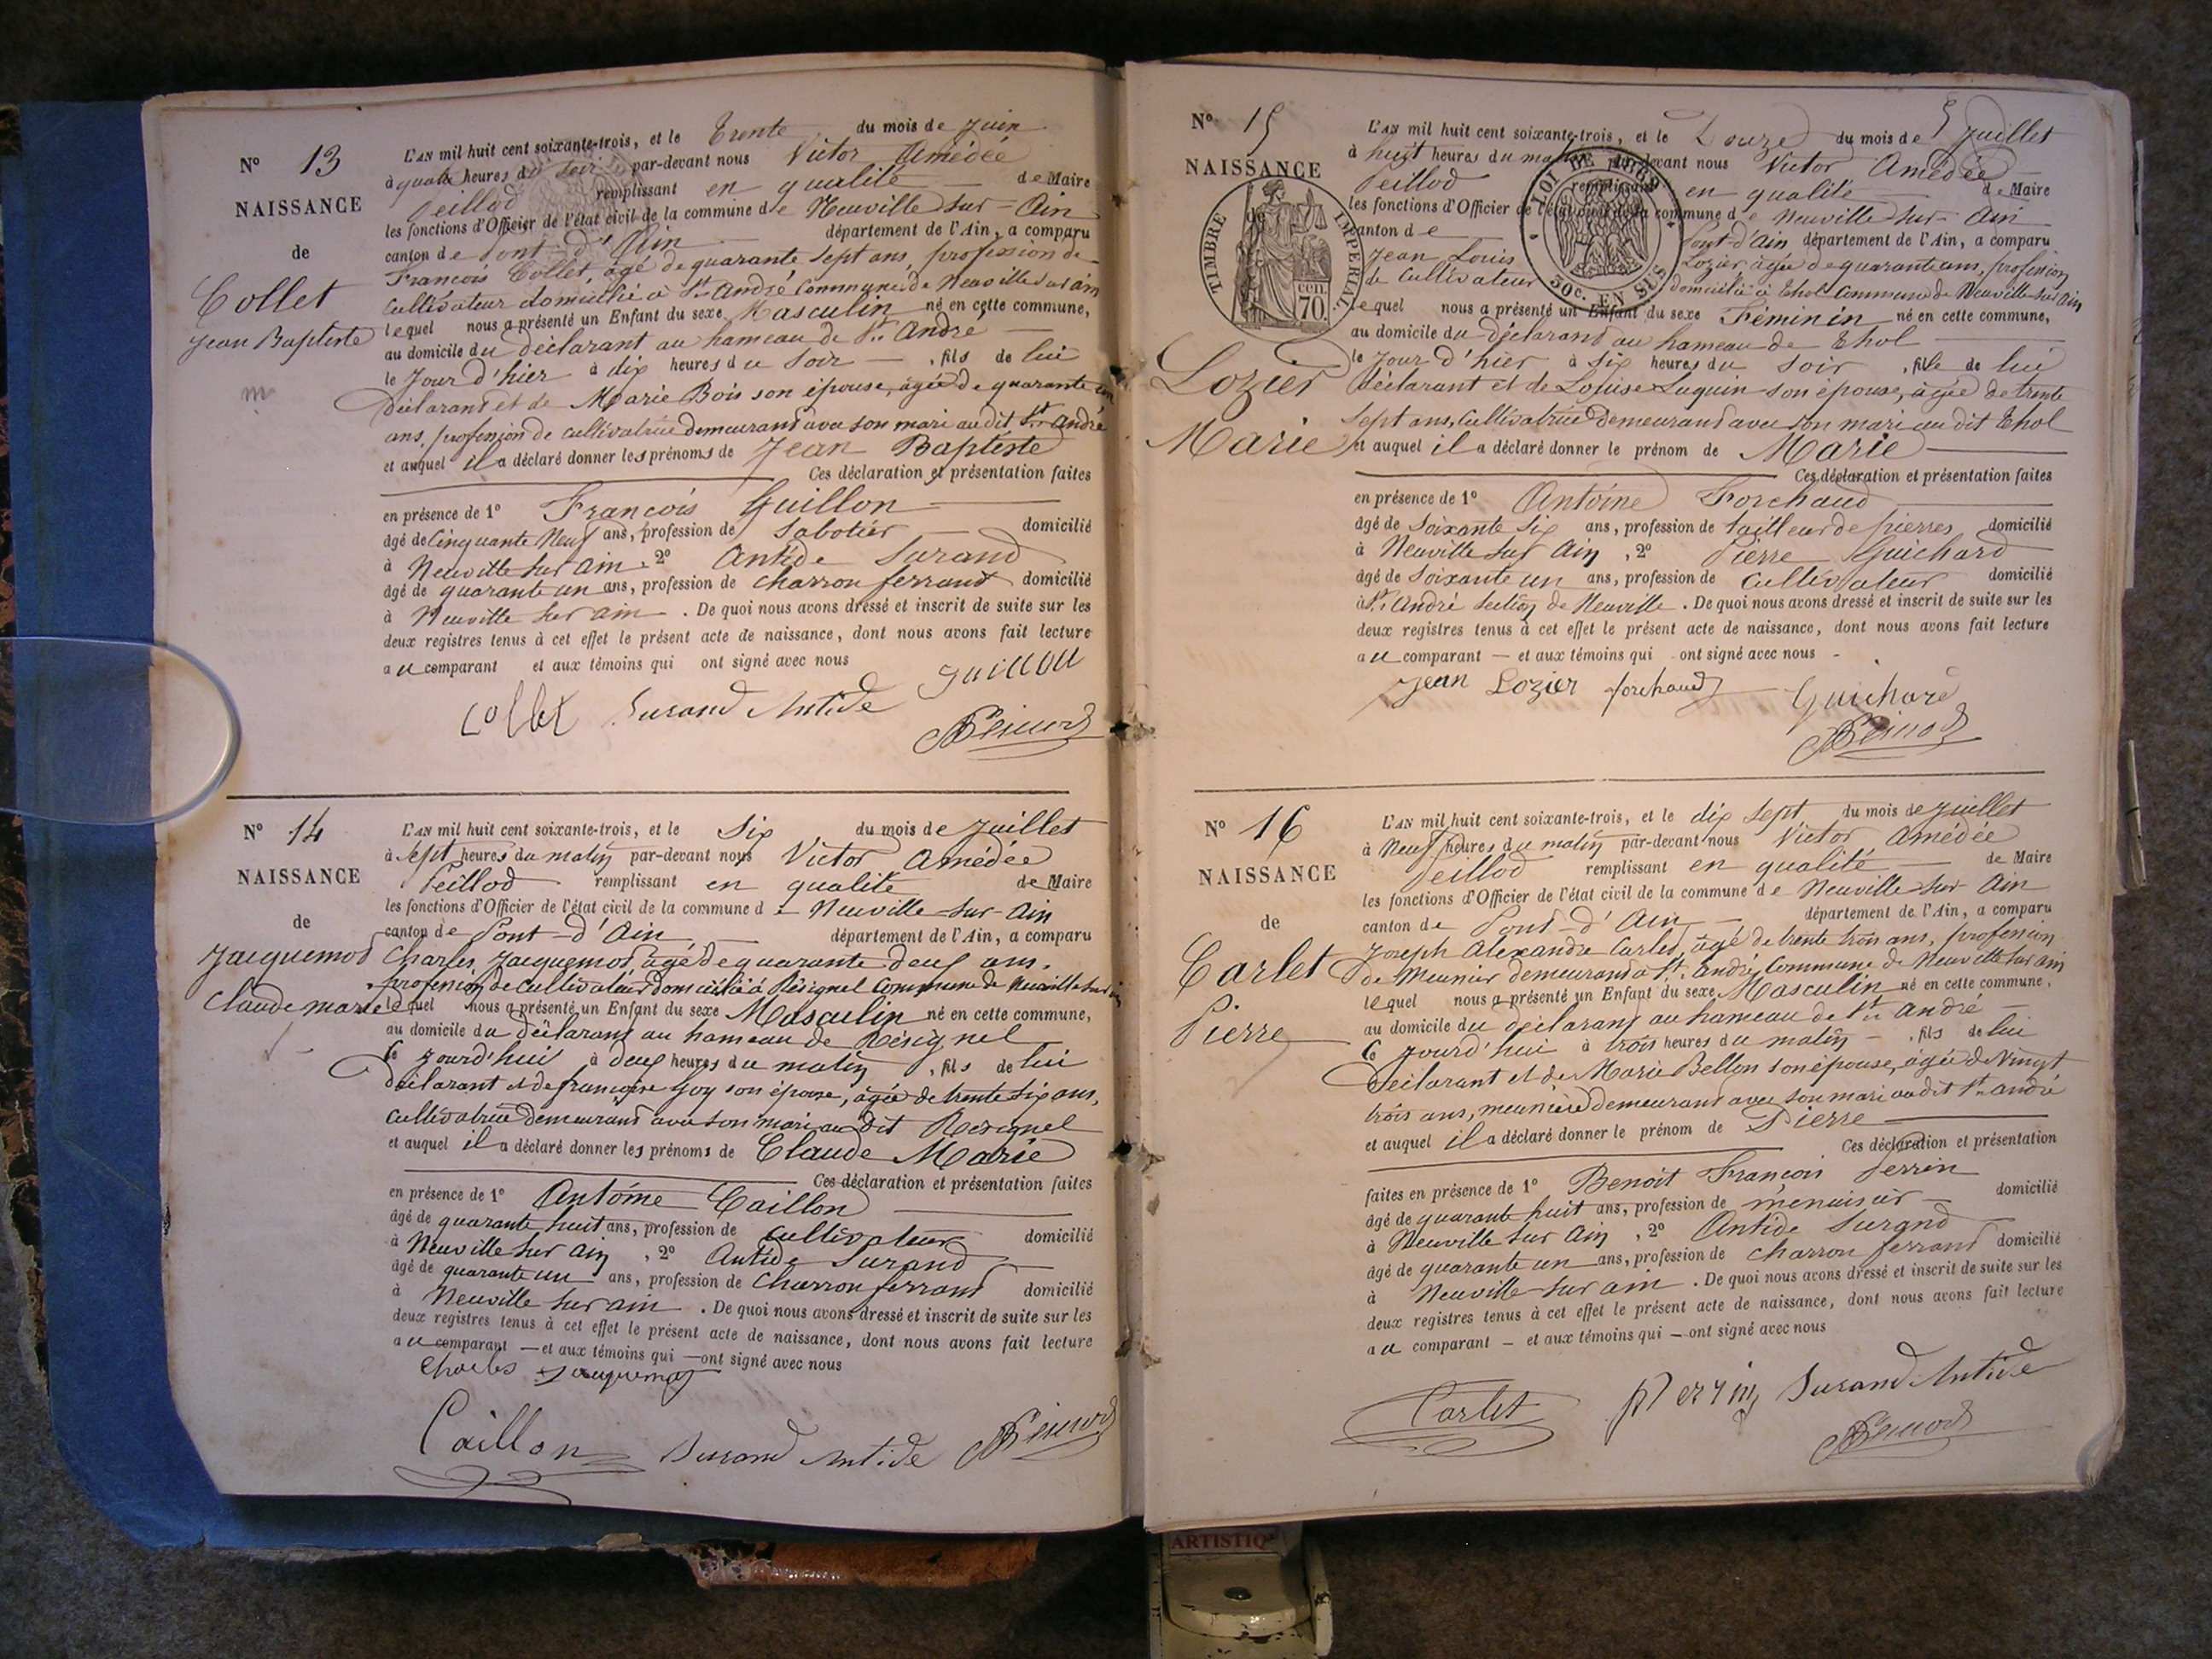 N° 13
NAISSANCE
de
Collet
Jean Baptiste
L'AN mil huit cent soixante-trois, et le Trente du mois de Juin
à quatre heures du soir par-devant nous Victor Amédée
Peillod remplissant en qualité de Maire
les fonctions d'Officier de l'état civil de la commune de Neuville sur-Ain
canton de Pont-d'Ain département de l'Ain, a comparu
François Collet, âgé de quarante sept ans, profession de
Cultivateur domicilié à St André Commune de Neuville sur ain
lequel nous a présenté un Enfant du sexe Masculin né en cette commune,
au domicile du déclarant au hameau de St André
le Jour d'hier à dix heures du Soir, fils de lui
déclarant et de Marie Bois son épouse, âgée de quarante un
ans, profession de cultivatrice demeurant avec son mari audit St André
et auquel il a déclaré donner les prénoms de Jean Baptiste
Ces déclaration et présentation faites
en présence de 1° François Guillon
âgé de Cinquante Neuf ans, profession de Sabotier domicilié
à Neuville sur ain, 2° Antide Durand
âgé de quarante un ans, profession de charron ferrant domicilié
à Neuville sur ain. De quoi nous avons dressé et inscrit de suite sur les
deux registres tenus à cet effet le présent acte de naissance, dont nous avons fait lecture
au comparant et aux témoins qui ont signé avec nous
Guillon
Collet Durand Antide
N° 14
NAISSANCE
de
Jacquemod
Claude marie
L'AN mil huit cent soixante-trois, et le Six du mois de Juillet
à sept heures du matin par-devant nous Victor Amédée
Peillod remplissant en qualité de Maire
les fonctions d'Officier de l'état civil de la commune de Neuville-sur-Ain
canton de Pont-d'Ain département de l'Ain, a comparu
Charles Jacquemod âgé de quarante deux ans,
profession de Cultivateur domicilié à Résignel Commune de Neuville sur ain
lequel nous a présenté un Enfant du sexe Masculin né en cette commune,
au domicile du déclarant au hameau de Résignel
le jourd'hui à deux heures du matin, fils de lui
déclarant et de françoise Goy son épouse, âgée de trente six ans,
Cultivatrice demeurant avec son mari au dit Résignel
et auquel il a déclaré donner les prénoms de Claude Marie
Ces déclaration et présentation faites
en présence de 1° Antoine Caillon
âgé de quarante huit ans, profession de Cultivateur domicilié
à Neuville sur Ain, 2° Antide Durand
âgé de quarante un ans, profession de Charron ferrant domicilié
à Neuville sur ain. De quoi nous avons dressé et inscrit de suite sur les
deux registres tenus à cet effet le présent acte de naissance, dont nous avons fait lecture
au comparant — et aux témoins qui — ont signé avec nous
Charles Jacquemod
Caillon Durand Antide
N° 15
NAISSANCE
de
TIMBRE IMPERIAL
70 cen.
Lozier
Marie
LOI DE 1862
50c. EN SUS
L'AN mil huit cent soixante-trois, et le Douze du mois de Juillet
à huit heures du matin par-devant nous Victor Amédée
Peillod remplissant en qualité de Maire
les fonctions d'Officier de l'état civil de la commune de Neuville sur-Ain
canton de Pont-d'Ain département de l'Ain, a comparu
Jean Louis Lozier, âgé de quarante ans, profession
de Cultivateur domicilié à Thol Commune de Neuville sur Ain
lequel nous a présenté un Enfant du sexe Féminin né en cette commune,
au domicile du déclarant au hameau de Thol
le Jour d'hier à six heures du soir, fille de lui
déclarant et de Louise Luquin son épouse, âgée de trente
sept ans, Cultivatrice demeurant avec son mari au dit Thol
et auquel il a déclaré donner le prénom de Marie
Ces déclaration et présentation faites
en présence de 1° Antoine Forchaud
âgé de Soixante Six ans, profession de tailleur de pierres domicilié
à Neuville sur Ain, 2° Pierre Guichard
âgé de Soixante un ans, profession de Cultivateur domicilié
à St André Section de Neuville. De quoi nous avons dressé et inscrit de suite sur les
deux registres tenus à cet effet le présent acte de naissance, dont nous avons fait lecture
au comparant — et aux témoins qui - ont signé avec nous -
Jean Lozier forchaud Guichard
N° 16
NAISSANCE
de
Carlet
Pierre
L'AN mil huit cent soixante-trois, et le dix sept du mois de Juillet
à Neuf heures du matin par-devant nous Victor Amédée
Peillod remplissant en qualité de Maire
les fonctions d'Officier de l'état civil de la commune de Neuville-sur-Ain
canton de Pont-d'Ain département de l'Ain, a comparu
Joseph Alexandre Carlet, âgé de trente trois ans, profession
de Meunier demeurant à St André, Commune de Neuville sur ain
lequel nous a présenté un Enfant du sexe Masculin né en cette commune,
au domicile du déclarant au hameau de St André
le jourd'hui à trois heures du matin -, fils de lui
déclarant et de Marie Bellon son épouse, âgée de Vingt
trois ans, meunière demeurant avec son mari audit St andré
et auquel il a déclaré donner le prénom de Pierre
Ces déclaration et présentation
faites en présence de 1° Benoit François Perrin
âgé de quarante huit ans, profession de menuisier domicilié
à Neuville sur Ain, 2° Antide Durand
âgé de quarante un ans, profession de charron ferrant domicilié
à Neuville sur ain. De quoi nous avons dressé et inscrit de suite sur les
deux registres tenus à cet effet le présent acte de naissance, dont nous avons fait lecture
au comparant — et aux témoins qui — ont signé avec nous
Carlet Perrin Durand Antide
ARTISTIQ